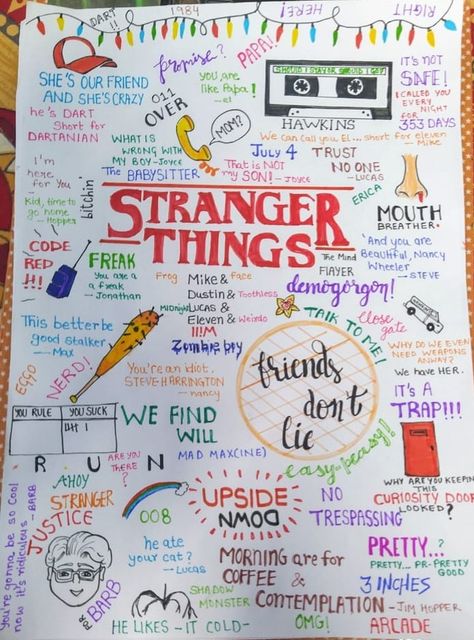 DART !!
1984
HERE!
RIGHT
SHE'S OUR FRIEND
AND SHE'S CRAZY
promise?
PAPA!
you are
like Papa!
- el
SHOULD I STAY OR SHOULD I GO?
HAWKINS
it's NOT
SAFE!
I CALLED YOU
EVERY
NIGHT
FOR
353 DAYS
he's DART
Short for
DARTANIAN
011
OVER
MOM?
We can call you EL... short for eleven
- Mike
WHAT IS
WRONG WITH
MY BOY - Joyce
JULY 4
TRUST
NO ONE
- LUCAS
I'm
here
for you
bitchin'
The BABYSITTER
That is NOT
my SON! - Joyce
ERICA
MOUTH
BREATHER.
Kid, time to
go home
- Hopper
STRANGER
THINGS
The Mind
FLAYER
And you are
Beautiful, Nancy
Wheeler
- STEVE
CODE
RED
!!!
FREAK
You are a
a freak
- Jonathan
Frog
Mike & Face
Dustin & Toothless
Midnight Lucas &
Eleven & Weirdo
!!!M
Zombie boy
demogorgon!
TALK TO ME!
Close
gate
This better be
good stalker
- Max
EGGO
NERD!
You're an idiot,
STEVE HARRINGTON
- nancy
friends
don't
lie
WHY DO WE EVEN
NEED WEAPONS
ANWAY?
We have HER.
IT'S A
TRAP!!!
YOU RULE
YOU SUCK
WE FIND
WILL
MAD MAX(CINE)
easy-peasy!
R U N
ARE YOU
THERE
?
WHY ARE YOU KEEPIN
THIS
CURIOSITY DOOR
LOOKED?
AHOY
STRANGER
JUSTICE
FOR
BARB
008
UPSIDE
DOWN
NO
TRESPASSING
You're gonna be so cool
now it's ridiculous - BARB
he ate
your cat?
- Lucas
MORNING are for
COFFEE &
CONTEMPLATION - JIM HOPPER
PRETTY..?
PRETTY... PR-PRETTY
GOOD
3 INCHES
SHADOW
MONSTER
HE LIKES - IT COLD -
OMG!
ARCADE